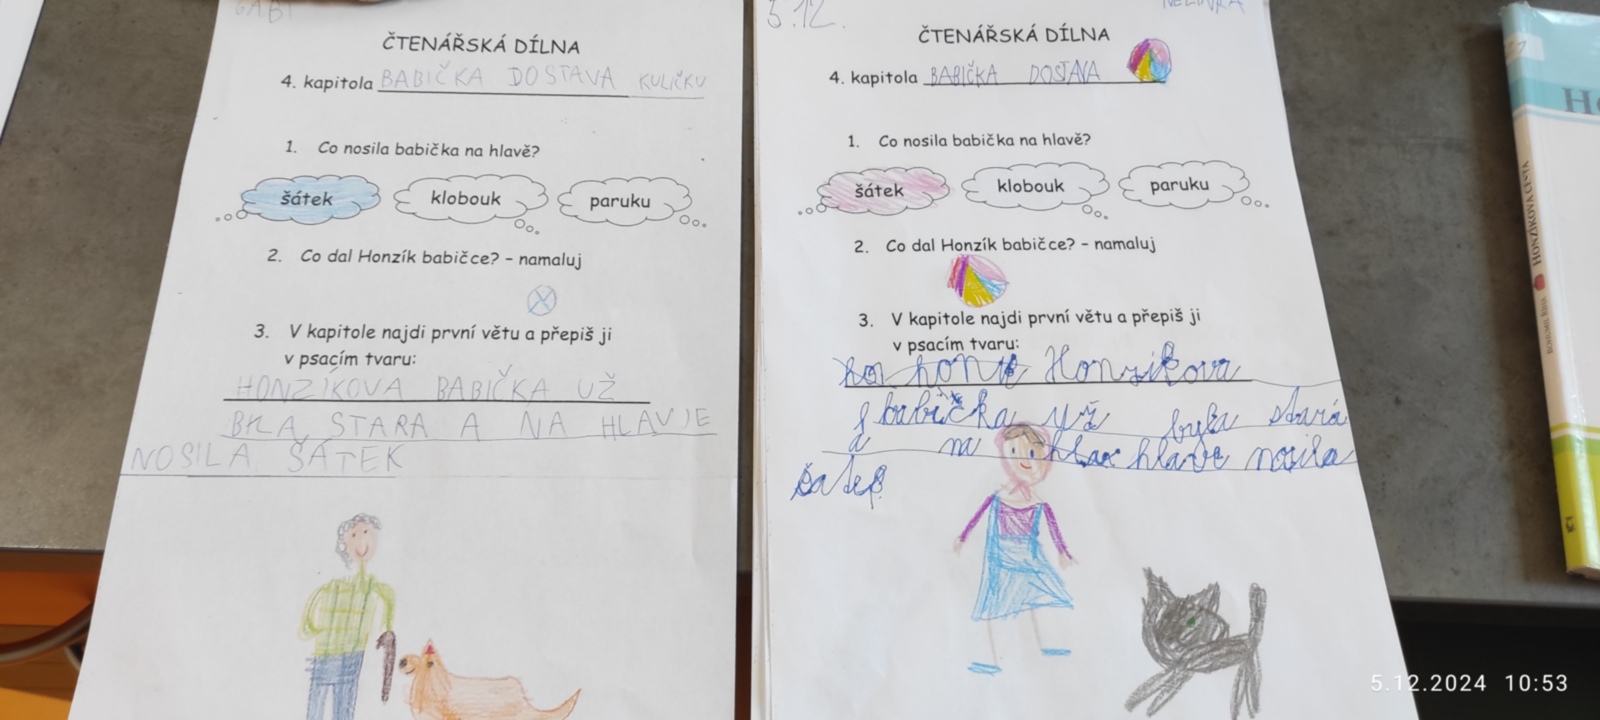 GABI
ČTENÁŘSKÁ DÍLNA
4. kapitola BABIČKA DOSTAVA KULIČKU
1. Co nosila babička na hlavě?
šátek klobouk paruku
2. Co dal Honzík babičce? - namaluj
3. V kapitole najdi první větu a přepiš ji
v psacím tvaru:
HONZÍKOVA BABIČKA UŽ
BKLA STARA A NA HLAVJE
NOSILA ŠÁTEK
5.12.
NELINKA
ČTENÁŘSKÁ DÍLNA
4. kapitola BABIČKA DOSTAVA
1. Co nosila babička na hlavě?
šátek klobouk paruku
2. Co dal Honzík babičce? - namaluj
3. V kapitole najdi první větu a přepiš ji
v psacím tvaru:
Honzikova
babička už byla stará
a na hlavě nosila
šatek
HONZÍKOVA CESTA
BOHUMIL ŘÍHA
5.12.2024 10:53